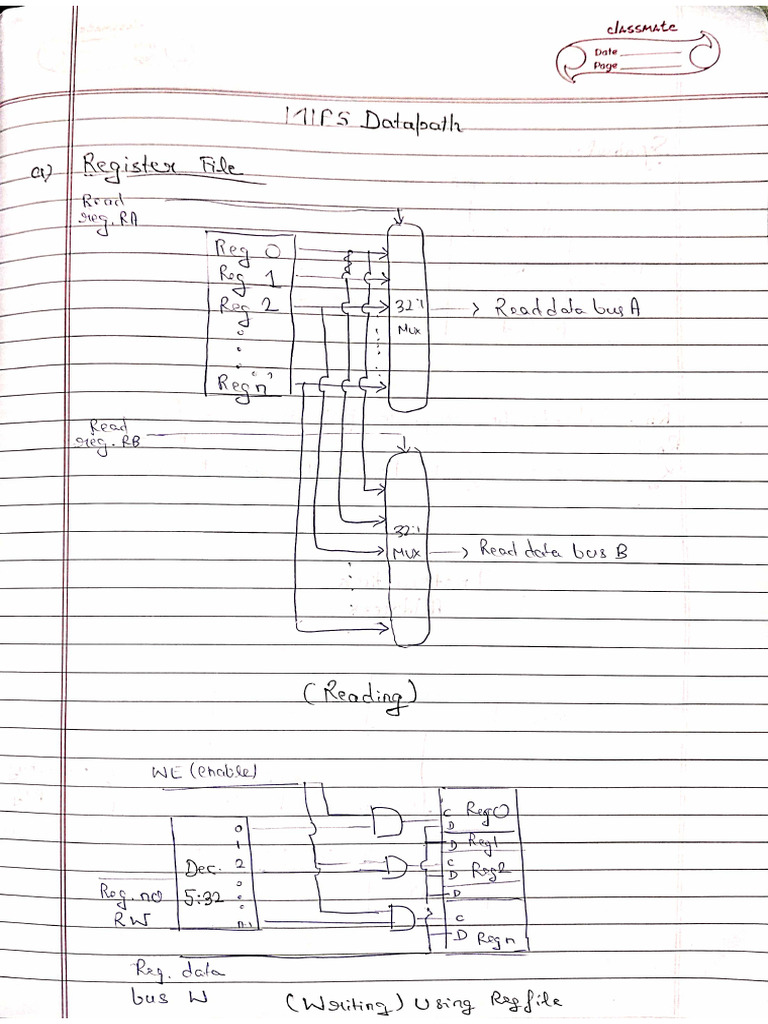 classmate
Date
Page
MIPS Datapath
a) Register File
Read
reg. RA
Reg 0
Reg 1
Reg 2
Reg n
32:1
Mux
Read data bus A
Read
reg. RB
32:1
Mux
Read data bus B
(Reading)
WE (enable)
0
1
Dec. 2
Reg. no 5:32
RW
C Reg 0
D
D Reg 1
C
D Reg 2
D
C
D Reg n
Reg. data
bus W
(Writing) Using Regfile